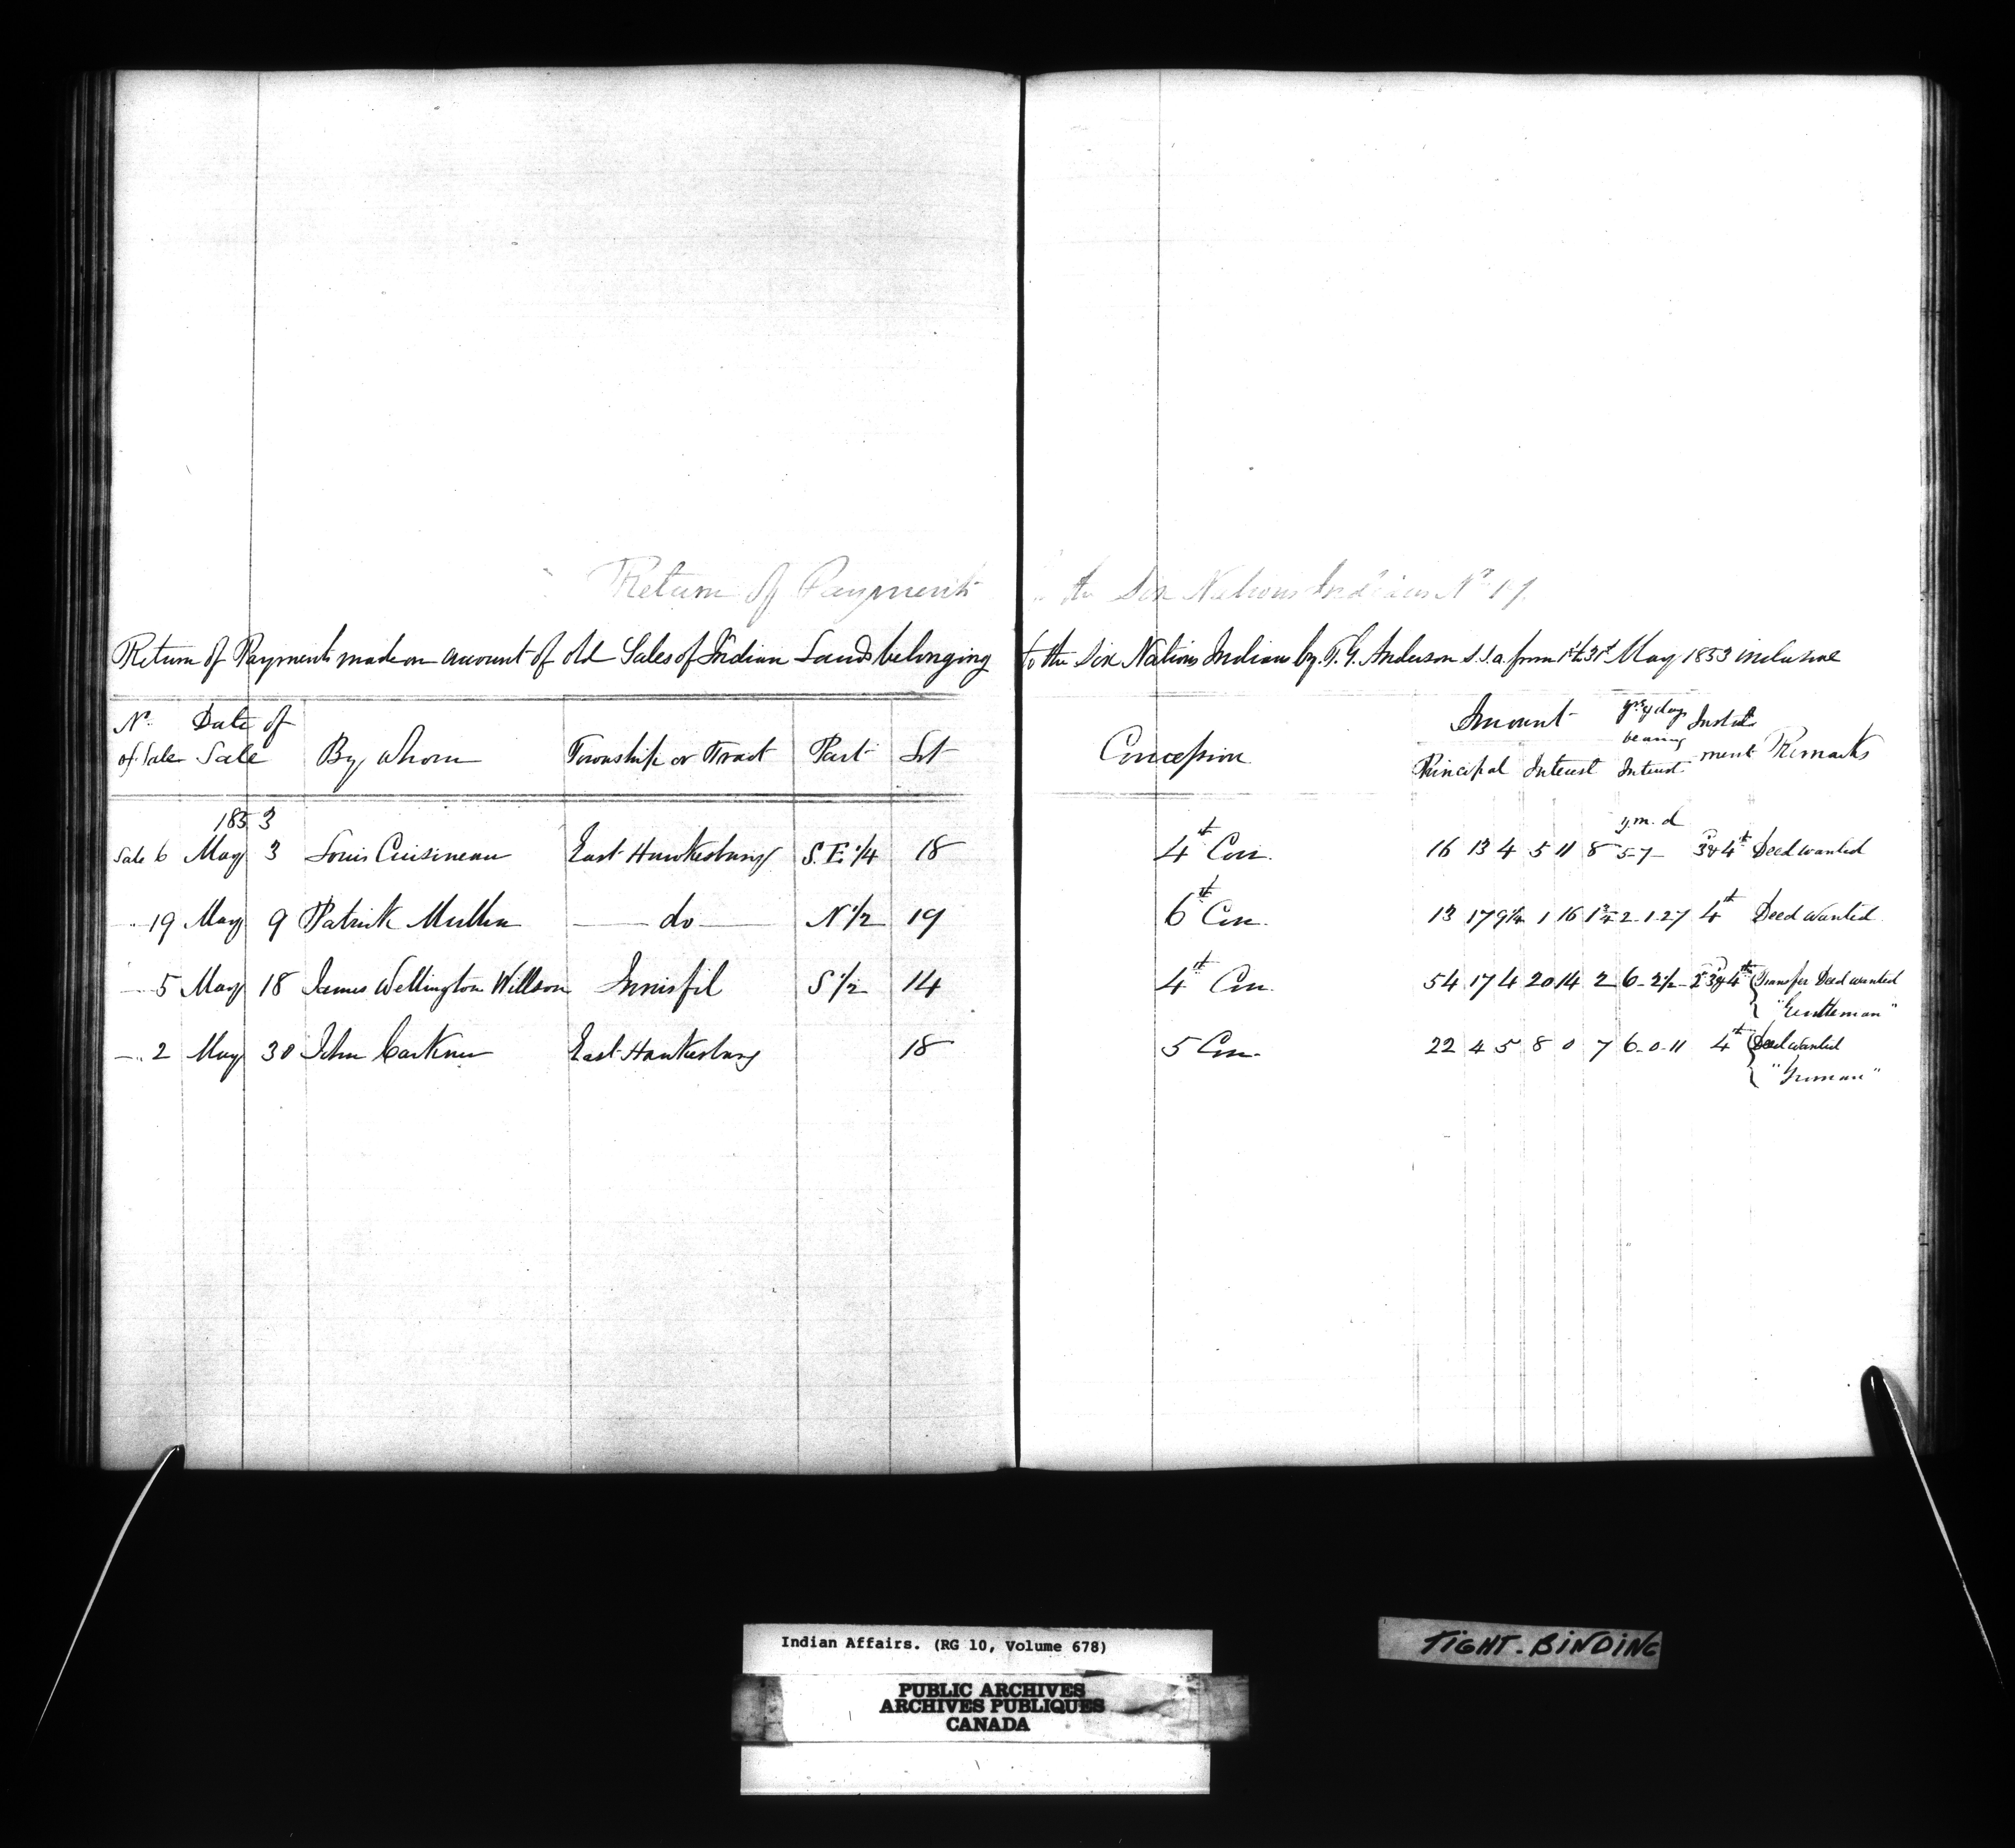 Return of Payments to the Six Nations Indians No 17.
Return of Payments made on account of old Sales of Indian Lands belonging to the Six Nations Indians by T. G. Anderson S.I.a. from 1st to 31st May 1853 inclusive
No. of Sale Date of Sale By Whom Township or Tract Part Lot Concession Amount Principal Interest bearing Interest Instalment Remarks
1853 y. m. d
Sale 6 May 3 Louis Cuisineau East Hawkesbury S. E 1/4 18 4th Con. 16 13 4 5 11 8 5-7- 3d & 4th Deed wanted
" 19 May 9 Patrick Mullin do N 1/2 19 6th Con. 13 17 9 1/4 1 16 1 3/4 2-1-27 4th Deed Wanted
" 5 May 18 James Wellington Willson Innisfil S 1/2 14 4th Con. 54 17 4 20 14 2 6-2 1/2- 2d 3d & 4th Transfer Deed wanted
"Gentleman"
" 2 May 30 John Carkner East Hawkesbury 18 5 Con. 22 4 5 8 0 7 6-0-11 4th Deed wanted
"Yeoman"
Indian Affairs. (RG 10, Volume 678)
TIGHT. BINDING
PUBLIC ARCHIVES
ARCHIVES PUBLIQUES
CANADA